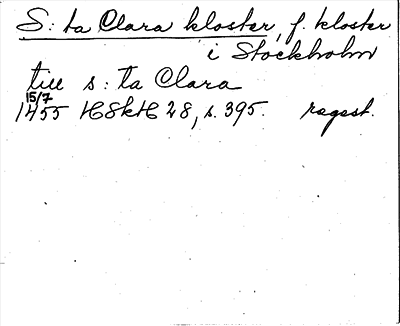 S:ta Clara kloster, f. kloster
i Stockholm
till s:ta Clara
15/7
1455 HSkH 28, s. 395. regest.